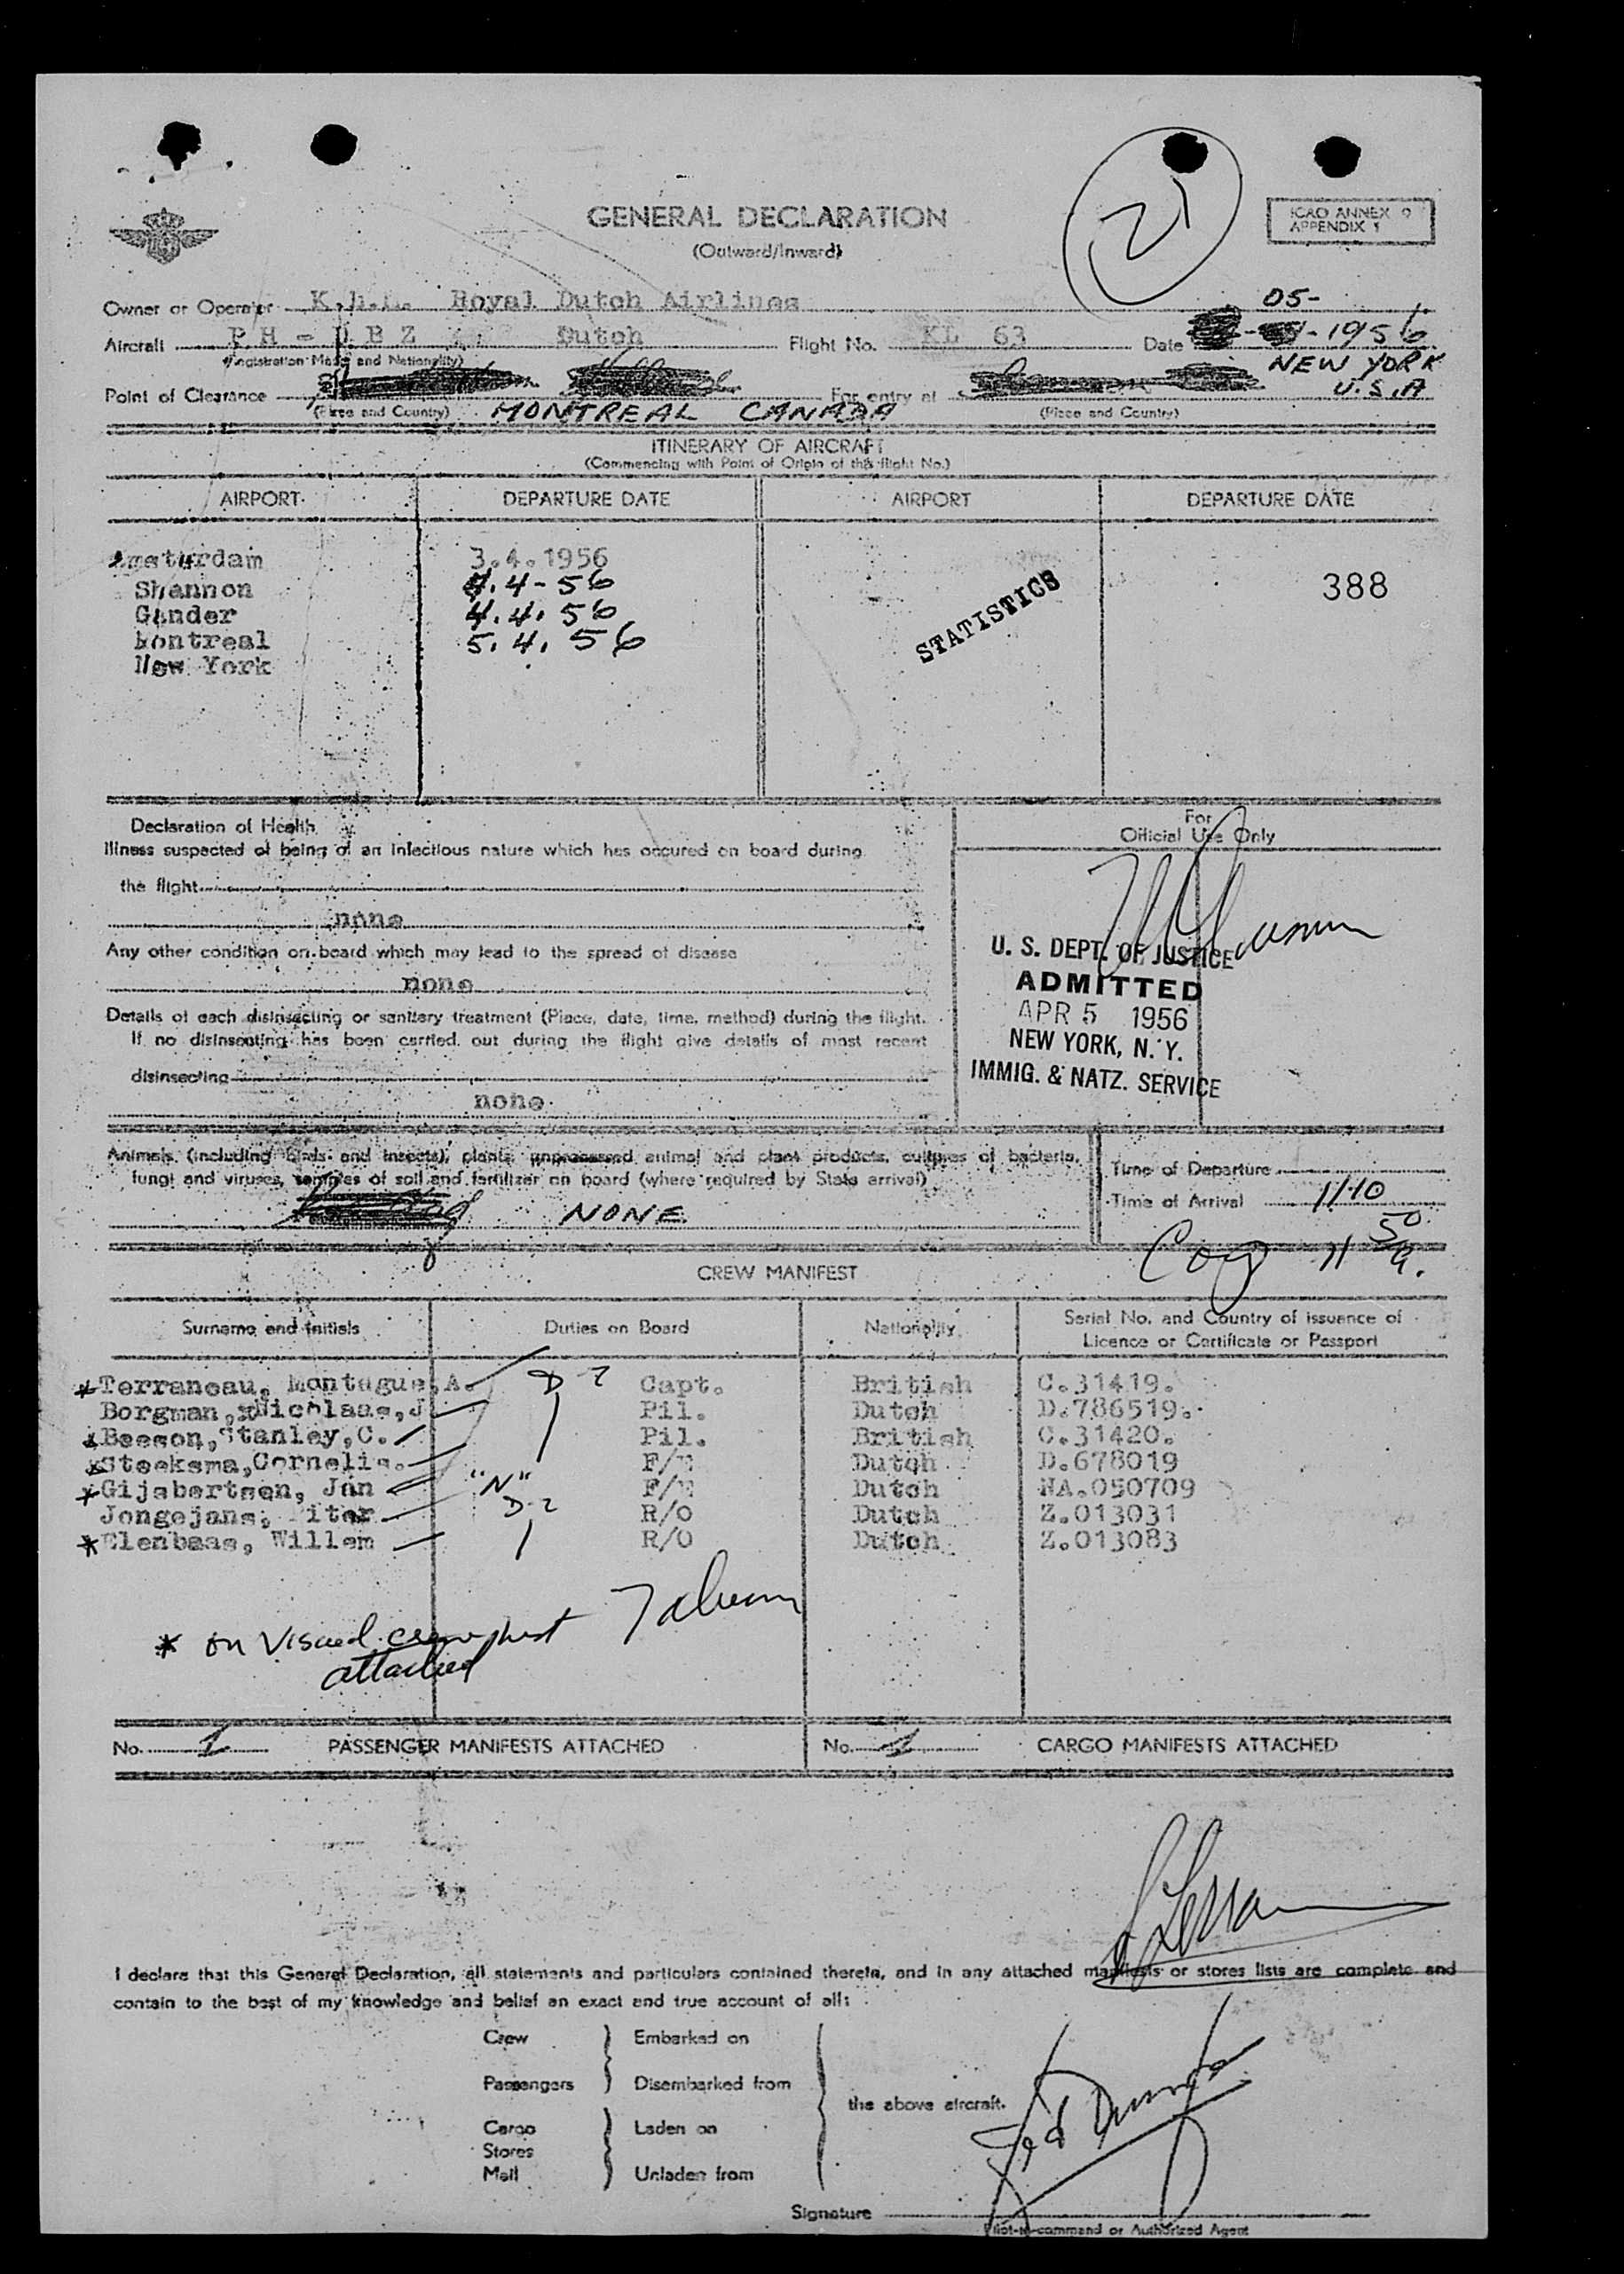 21
GENERAL DECLARATION
(Outward/Inward)
ICAO ANNEX 9
APPENDIX 1
Owner or Operator K.L.M. Royal Dutch Airlines
05-
Aircraft PH - DBZ Dutch Flight No. KL 63 Date -1956
(Registration Marks and Nationality)
NEW YORK
U.S.A
Point of Clearance For entry at
(Place and Country) MONTREAL CANADA (Place and Country)
ITINERARY OF AIRCRAFT
(Commencing with Point of Origin of this flight No.)
AIRPORT DEPARTURE DATE AIRPORT DEPARTURE DATE
Amsterdam 3.4.1956
Shannon 4.4-56
Gander 4.4.56
Montreal 5.4.56
New York
STATISTICS
388
Declaration of Health
Illness suspected of being of an infectious nature which has occured on board during
the flight
none
Any other condition on board which may lead to the spread of disease
none
Details of each disinsecting or sanitary treatment (Place, date, time, method) during the flight.
If no disinsecting has been carried out during the flight give details of most recent
disinsecting
none
For
Official Use Only
U. S. DEPT. OF JUSTICE
ADMITTED
APR 5 1956
NEW YORK, N. Y.
IMMIG. & NATZ. SERVICE
Animals (including birds and insects), plants, unprocessed animal and plant products, cultures of bacteria,
fungi and viruses, samples of soil and fertilizer on board (where required by State arrival)
NONE
Time of Departure
Time of Arrival 1110
11 50
CREW MANIFEST
Surname and initials Duties on Board Nationality Serial No. and Country of issuance of
Licence or Certificate or Passport
*Terraneau, Montague,A. D-2 Capt. British C.31419.
Borgman, Nicolaas,J Pil. Dutch D.786519.
*Beeson,Stanley,C. Pil. British C.31420.
*Steeksma,Cornelis. F/E Dutch D.678019
*Gijsbertsen, Jan "N" F/E Dutch NA.050709
Jongejans, Piter D-2 R/O Dutch Z.013031
*Elenbaas, Willem R/O Dutch Z.013083
* on Visaed crew list
attached
No. 1 PASSENGER MANIFESTS ATTACHED No. 1 CARGO MANIFESTS ATTACHED
I declare that this General Declaration, all statements and particulars contained therein, and in any attached manifests or stores lists are complete and
contain to the best of my knowledge and belief an exact and true account of all:
Crew Embarked on
Passengers Disembarked from
the above aircraft.
Cargo Laden on
Stores
Mail Unladen from
Signature
Pilot-in-command or Authorized Agent